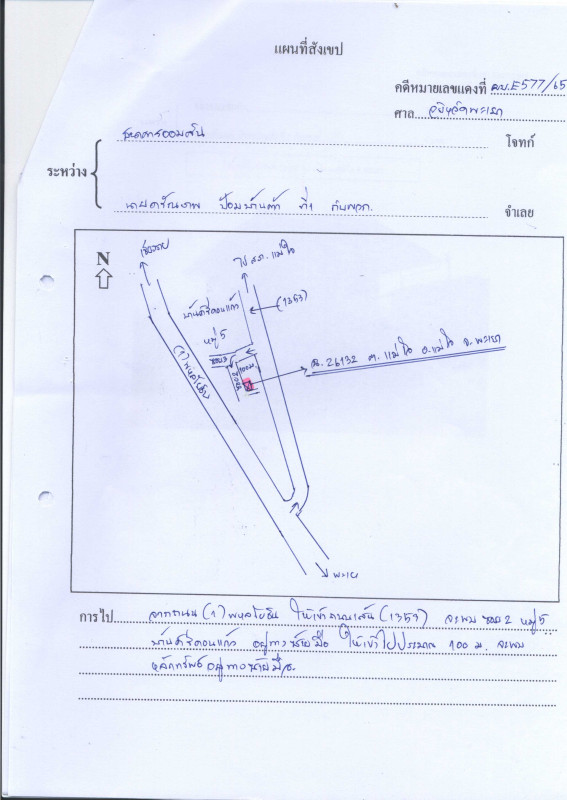 แผนที่สังเขป
คดีหมายเลขแดงที่ ผบ.E577/65
ศาล จังหวัดพะเยา
ธนาคารออมสิน โจทก์
ระหว่าง
ป้อมบ้านต้า ที่1 กับพวก. จำเลย
N
เชียงราย
ไป สภ.แม่ใจ
(1353)
บ้านศรีดอนแก้ว
หมู่ 5
(1) พหลโยธิน
ซอย 2
100 ม.
ฉ. 26132 ต. แม่ใจ อ.แม่ใจ จ.พะเยา
พะเยา
การไป จากถนน (1) พหลโยธิน ให้เข้าถนนเส้น (1353) จะพบ ซอย 2 หมู่ 5
บ้านศรีดอนแก้ว อยู่ทางซ้ายมือ ให้เข้าไปประมาณ 100 ม. จะพบ
หลักทรัพย์อยู่ทางซ้ายมือ.